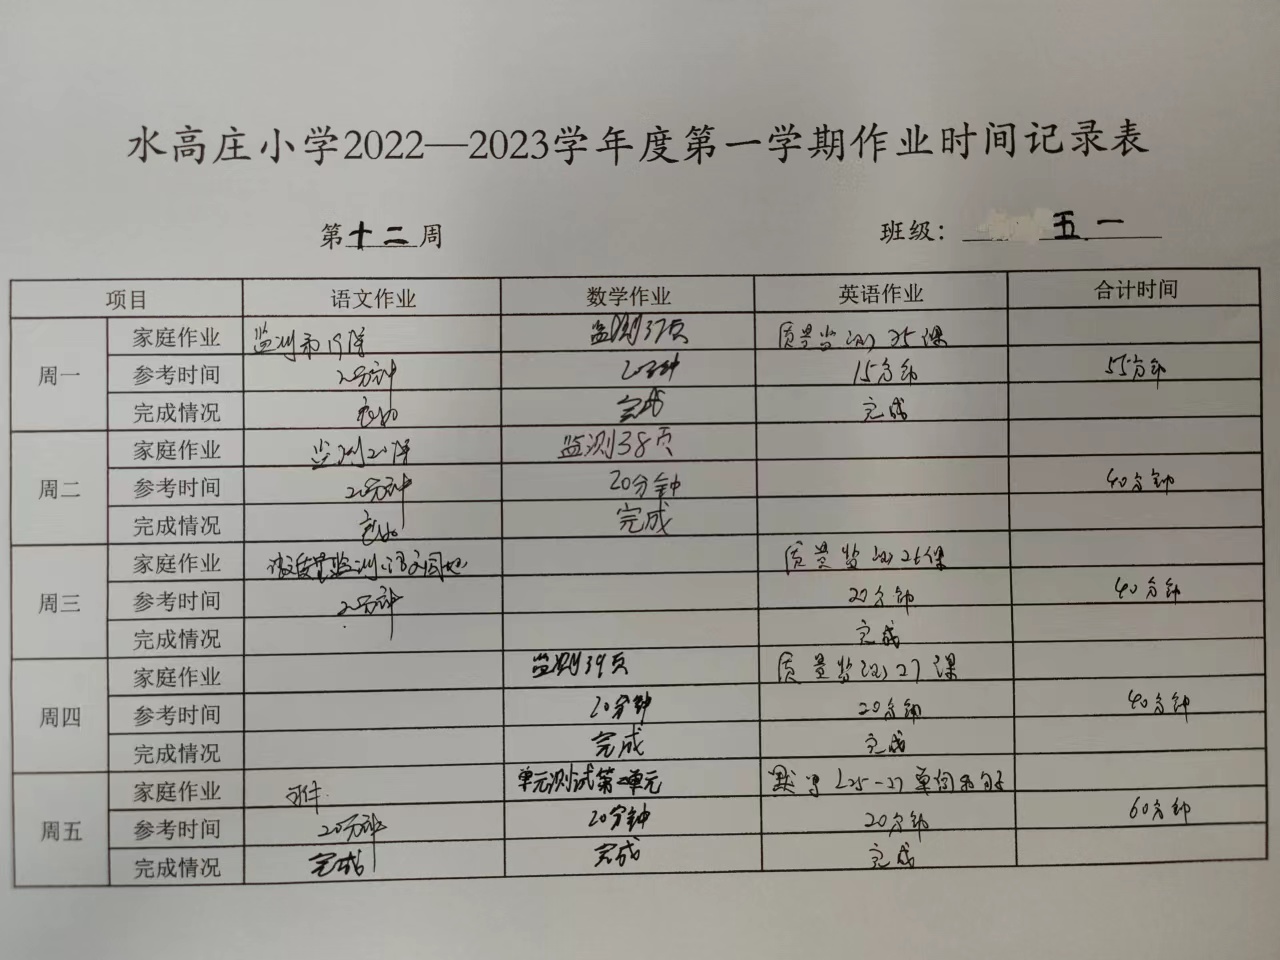 水高庄小学2022—2023学年度第一学期作业时间记录表
第十二周 班级：五一
项目 语文作业 数学作业 英语作业 合计时间
周一
家庭作业 监测 19课 监测37页 质量监测 25课
参考时间 20分钟 20分钟 15分钟 55分钟
完成情况 完成 完成 完成
周二
家庭作业 监测20课 监测38页
参考时间 20分钟 20分钟 40分钟
完成情况 完成 完成
周三
家庭作业 质量监测 语文园地 质量监测26课
参考时间 20分钟 20分钟 40分钟
完成情况 完成
周四
家庭作业 监测39页 质量监测27课
参考时间 20分钟 20分钟 40分钟
完成情况 完成 完成
周五
家庭作业 单元测试第 单元 默写L25-27单词和句子
参考时间 20分钟 20分钟 20分钟 60分钟
完成情况 完成 完成 完成